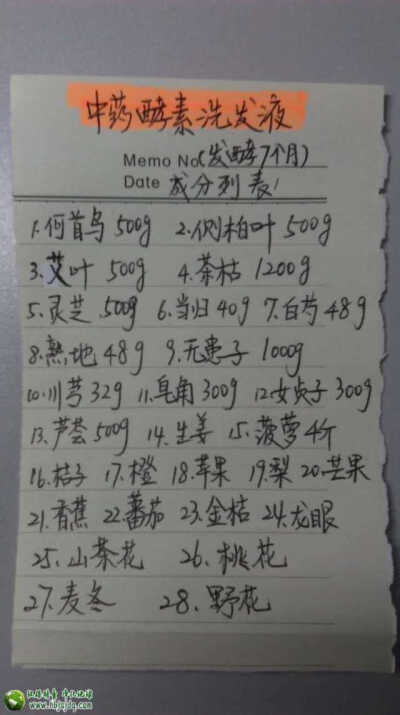 中药酵素洗发液
Memo No(发酵7个月)
Date 成分列表:
1.何首乌 500g 2.侧柏叶 500g
3.艾叶 500g 4.茶枯 1200g
5.灵芝 500g 6.当归 40g 7.白芍 48g
8.熟地 48g 9.无患子 1000g
10.川芎 32g 11.皂角 300g 12.女贞子 300g
13.芦荟 500g 14.生姜 15.菠萝 4斤
16.桔子 17.橙 18.苹果 19.梨 20.芒果
21.香蕉 22.蕃茄 23.金桔 24.龙眼
25.山茶花 26.桃花
27.麦冬 28.野花